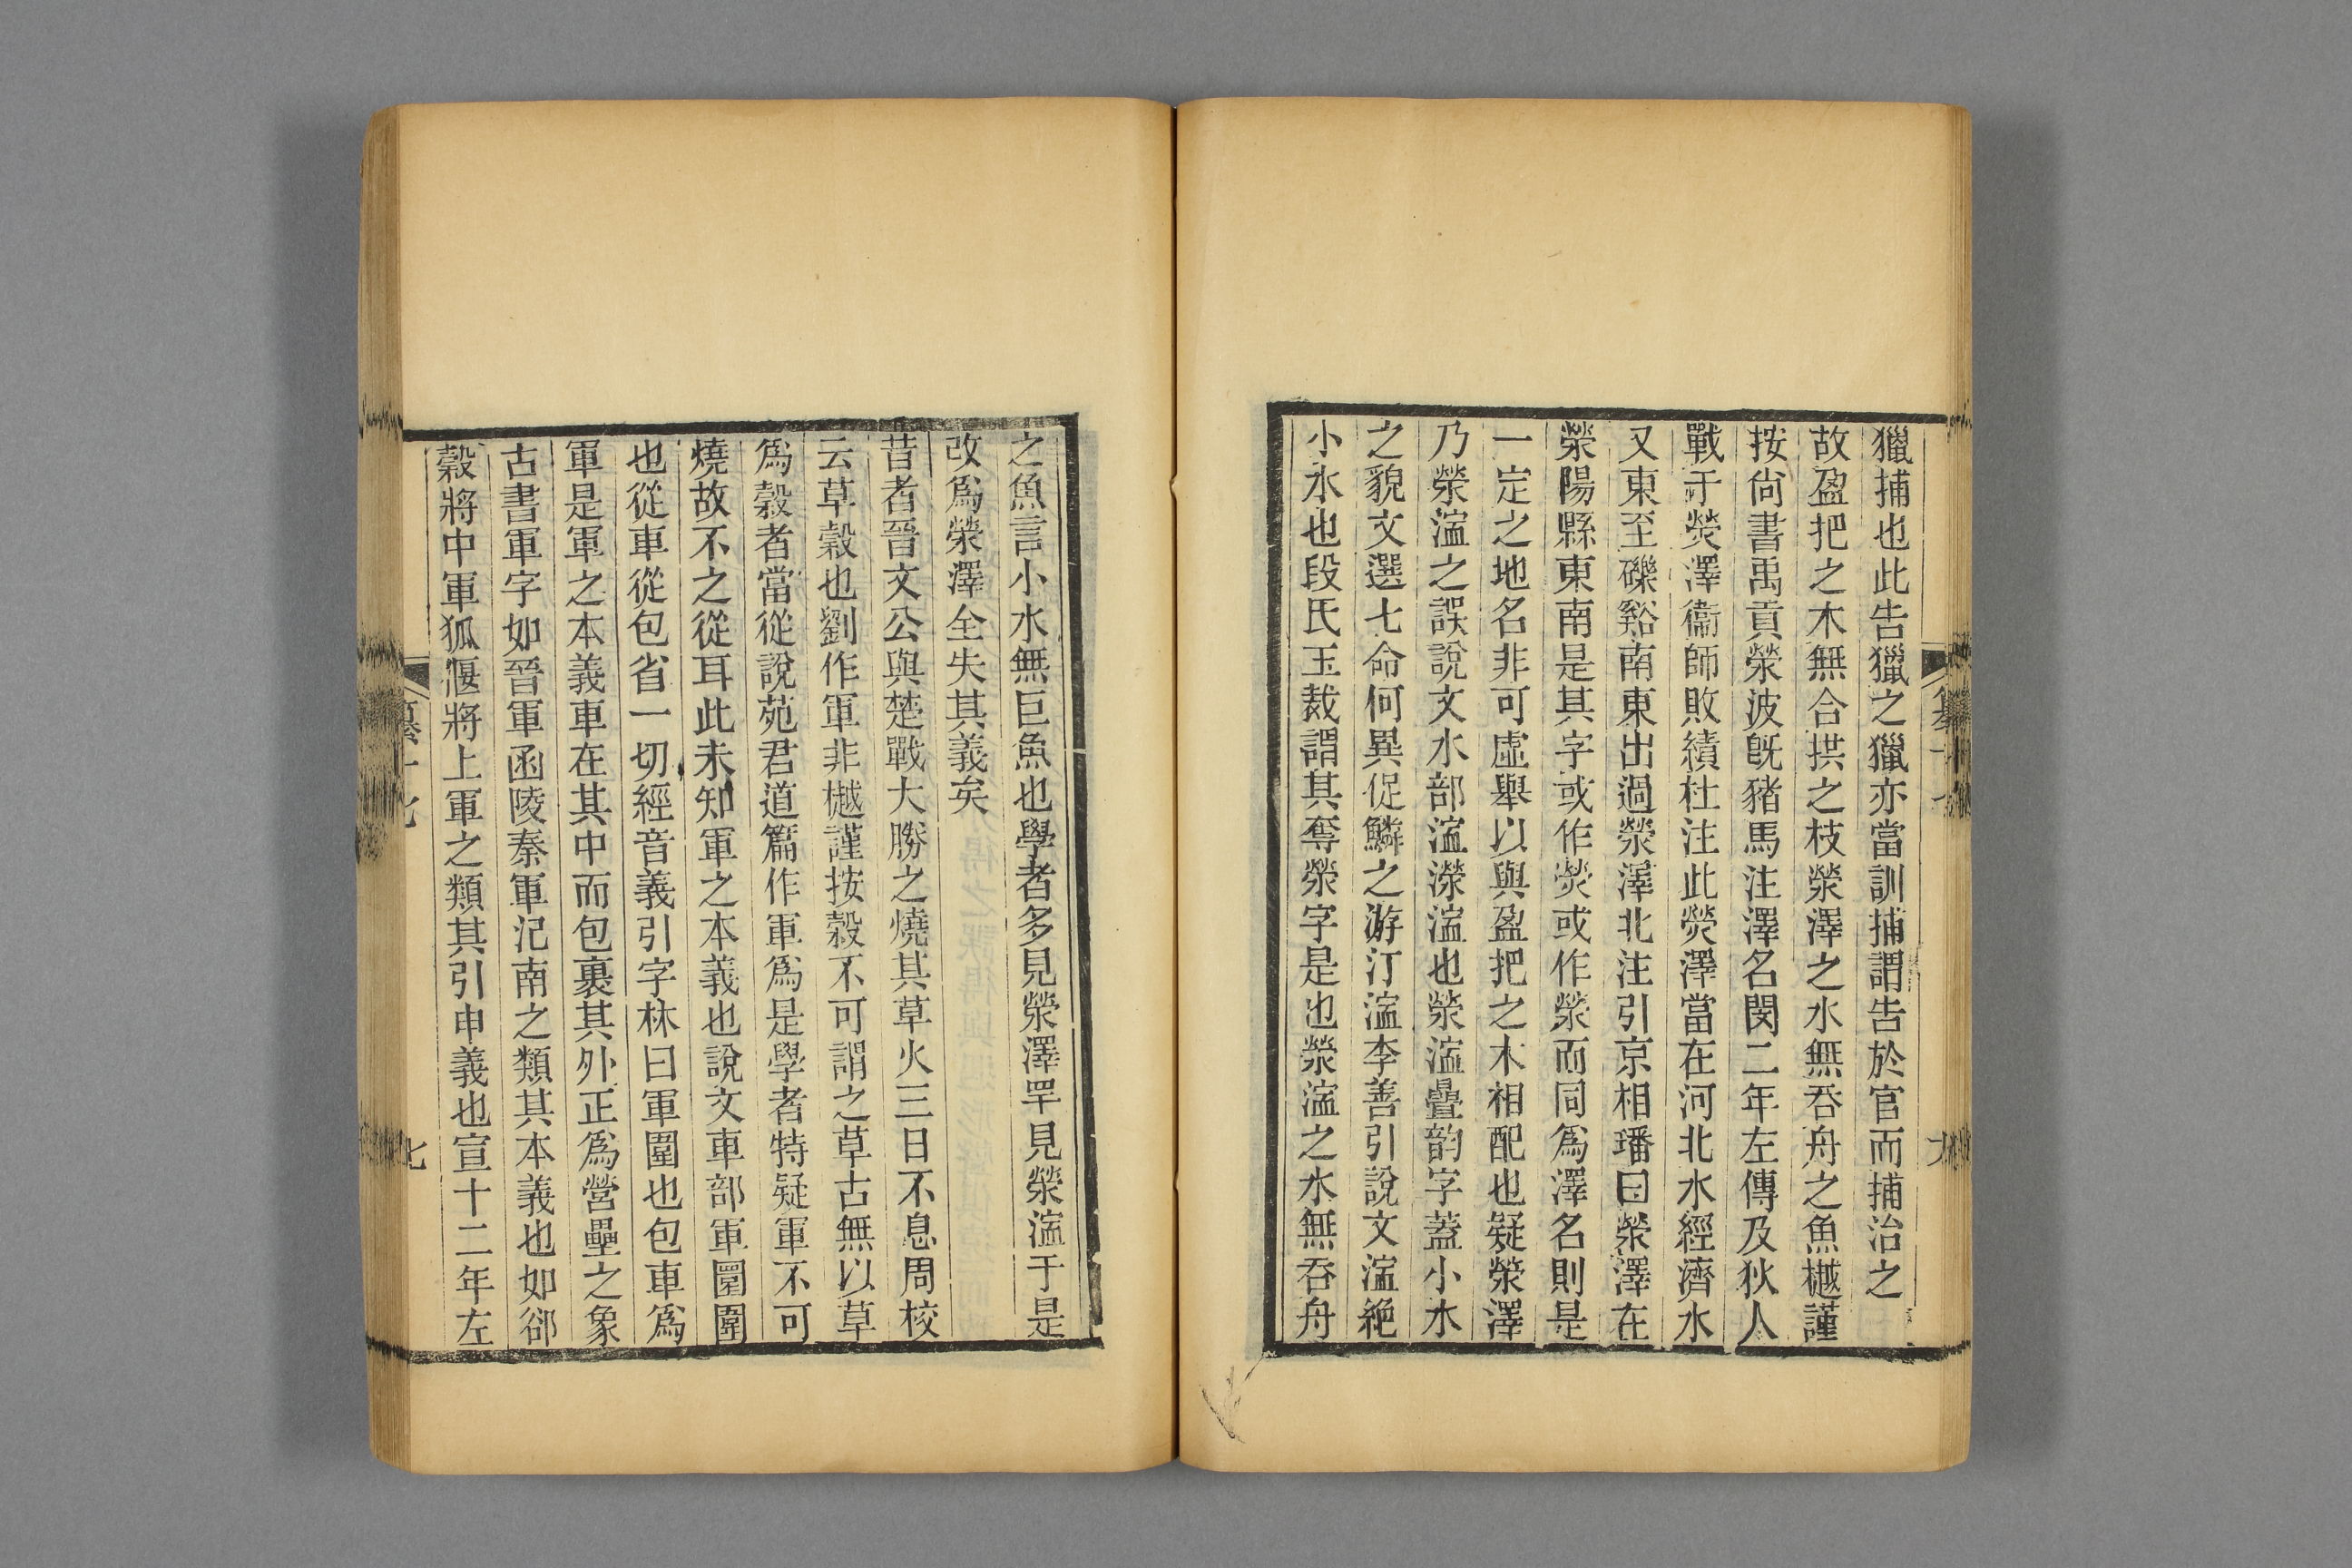 獵捕也此告獵之獵亦當訓捕謂告於官而捕治之
故盈把之木無合拱之枝滎澤之水無吞舟之魚樾謹
按尙書禹貢滎波旣豬馬注澤名閔二年左傳及狄人
戰于熒澤衞師敗績杜注此熒澤當在河北水經濟水
又東至礫谿南東出過滎澤北注引京相璠曰滎澤在
滎陽縣東南是其字或作熒或作滎而同爲澤名則是
一定之地名非可虛舉以與盈把之木相配也疑滎澤
乃滎濙之誤說文水部
之貌文選七命何異促鱗之游汀濙李善引說文濙絶
小水也段氏玉裁謂其奪滎字是也滎濙之水無吞舟
之魚言小水無巨魚也學者多見滎澤罕見滎濙于是
改爲滎澤全失其義矣
昔者晉文公與楚戰大勝之燒其草火三日不息周校
云草穀也劉作軍非樾謹按穀不可謂之草古無以草
爲穀者當從說苑君道篇作軍爲是學者特疑軍不可
燒故不之從耳此未知軍之本義也說文車部軍圜圍
也從車從包省一切經音義引字林曰軍圍也包車爲
軍是軍之本義車在其中而包裹其外正爲營壘之象
古書軍字如晉軍函陵秦軍氾南之類其本義也如郤
縠將中軍狐偃將上軍之類其引申義也宣十二年左
七